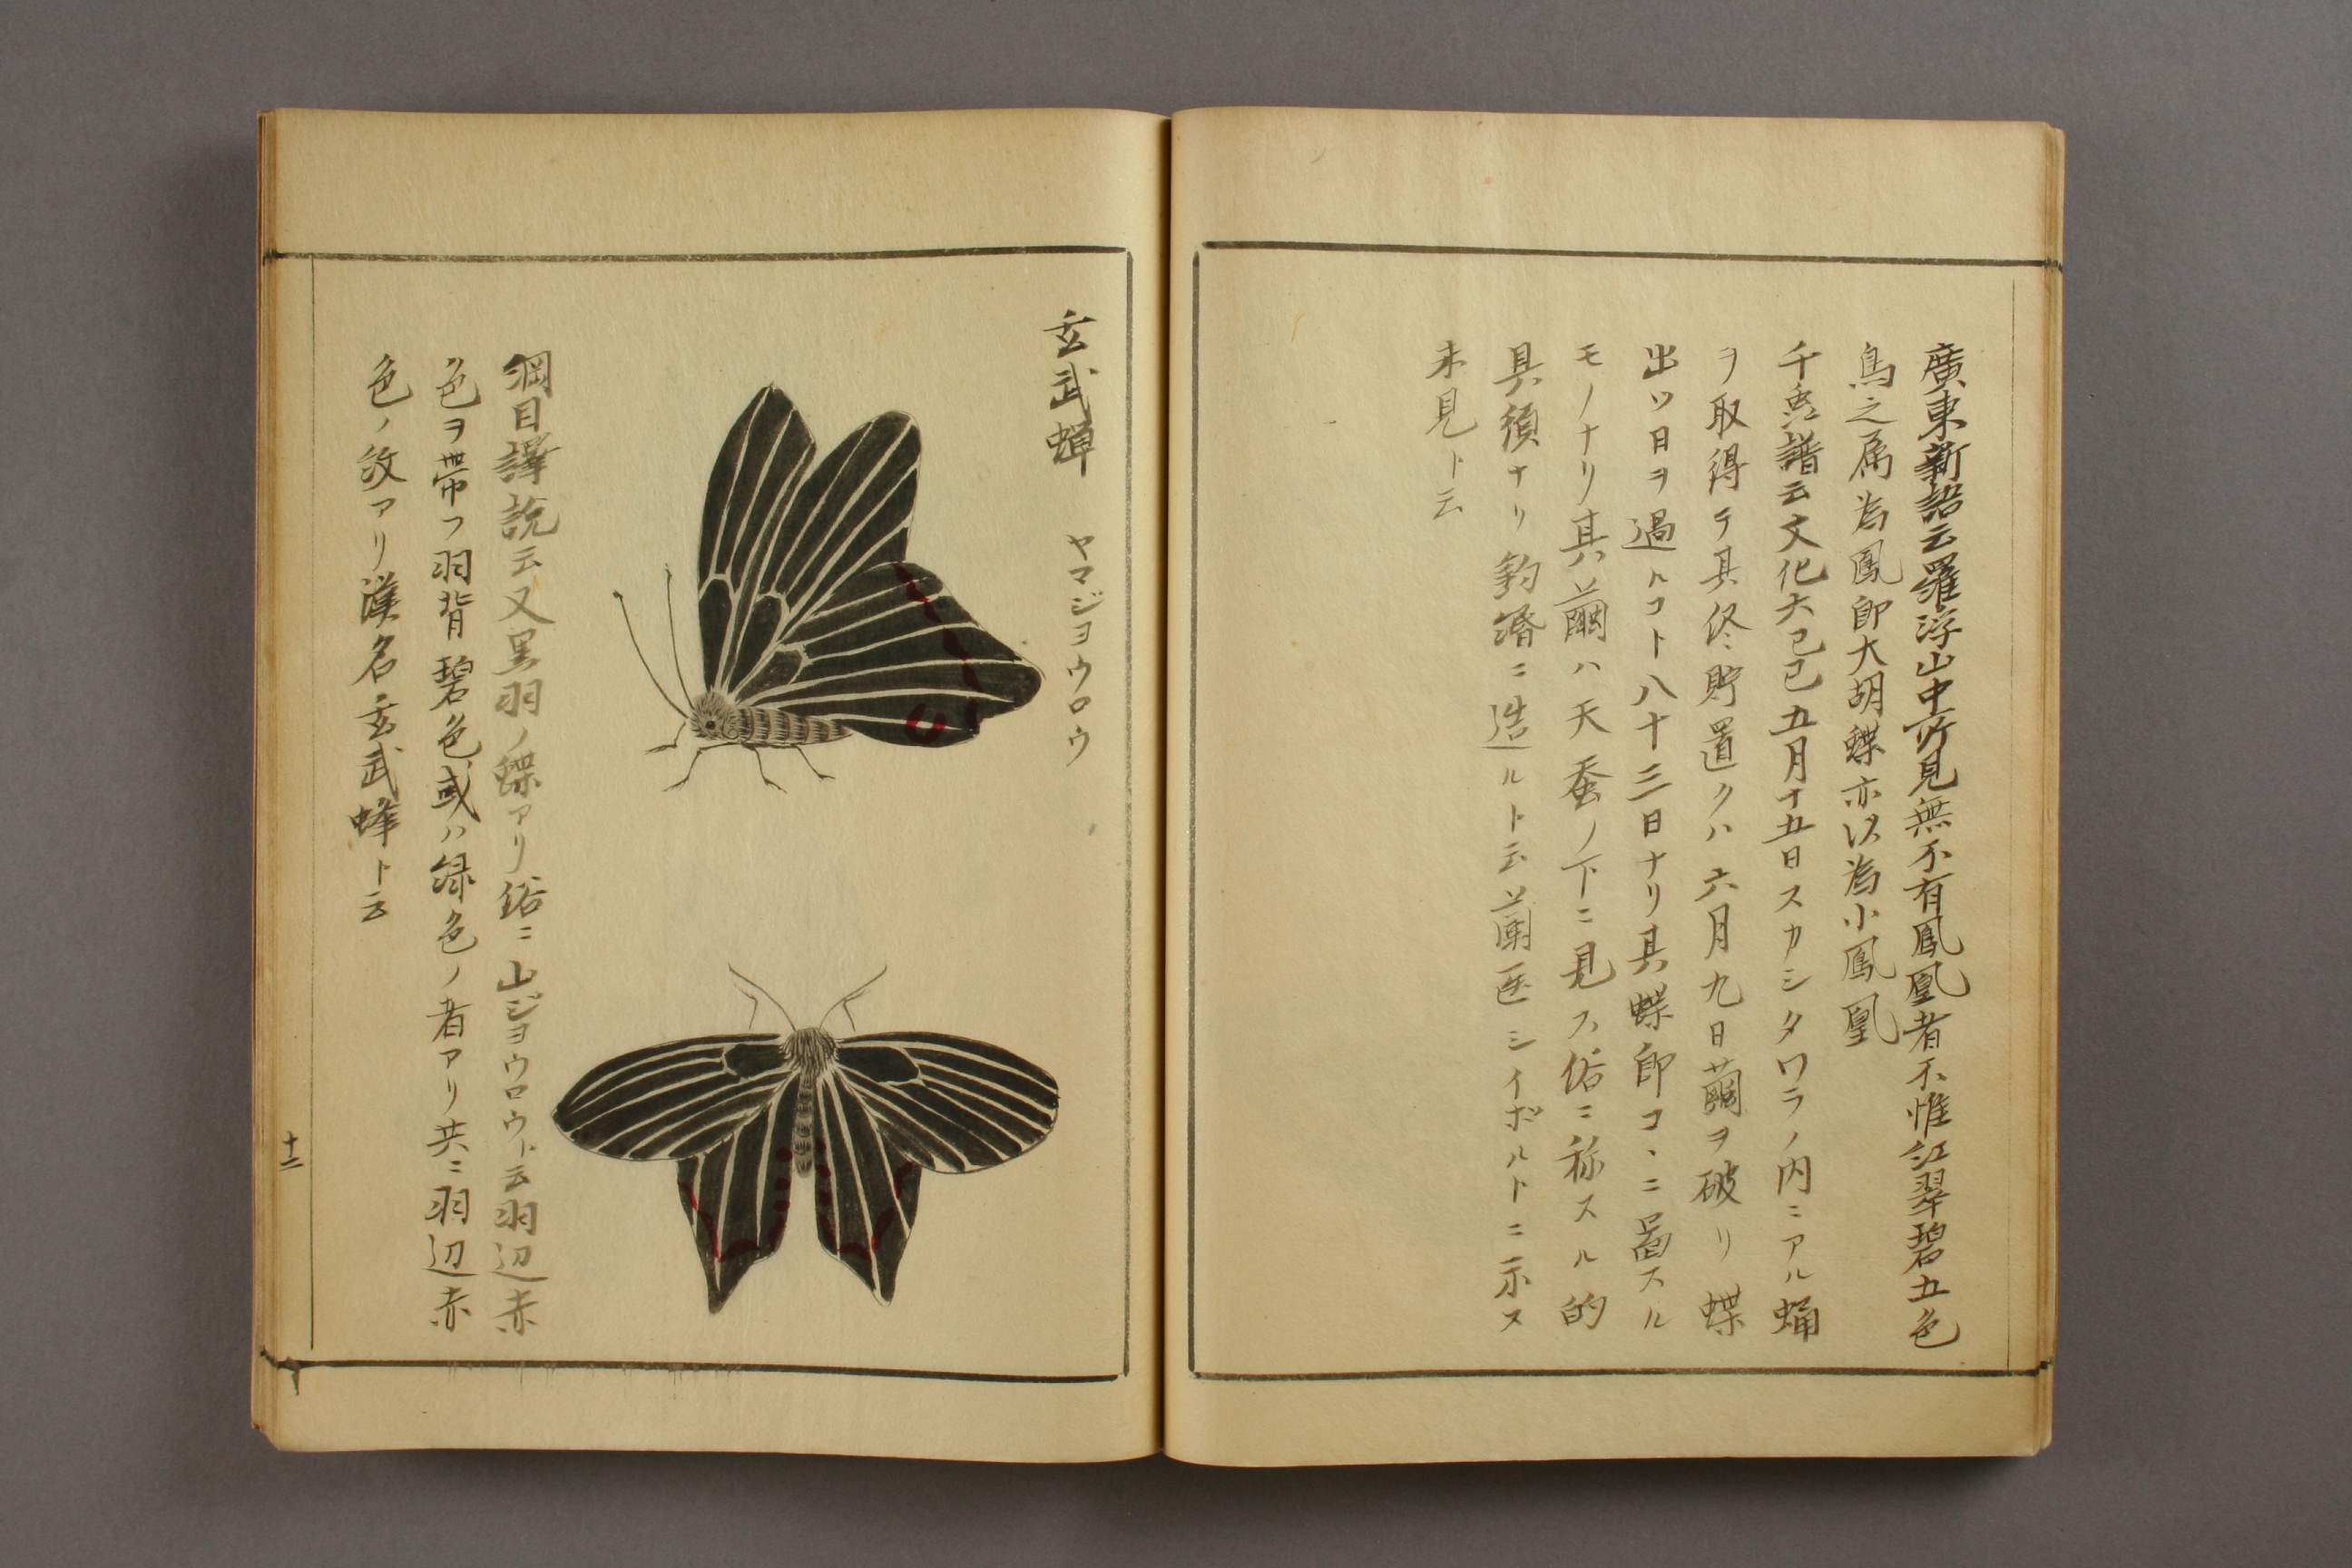 廣東新語云羅浮山中所見無不有鳳凰者不惟紅翠碧五色
鳥之属為鳳即大胡蝶亦以為小鳳凰
千蟲譜云文化六己巳五月十五日スカシタワラノ内ニアル蛹
ヲ取得テ其侭貯置クハ六月九日繭ヲ破リ蝶
出ツ日ヲ過ルコト八十三日ナリ其蝶即コヽニ啚スル
モノナリ其繭ハ天蚕ノ下ニ見ス俗ニ称スル的
具須ナリ釣緡ニ造ルト云蘭医シイボルトニ示ス
未見ト云
玄武蝉 ヤマジヨウロウ
綱目譯說云又黒羽ノ蝶アリ俗ニ山ジヨウロウト云羽辺赤
色ヲ帯フ羽背碧色或ハ緑色ノ者アリ共ニ羽辺赤
色ノ紋アリ漢名玄武蜂ト云
十二